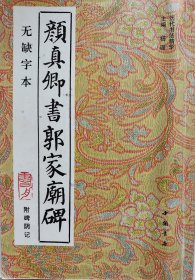 顔真卿書郭家廟碑
无缺字本
附碑阴记
中国书店